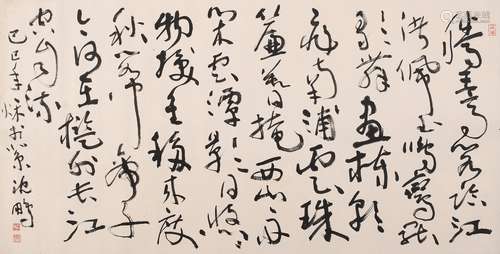 滕王高阁临江
渚佩玉鸣鸾罢
歌舞画栋朝
飞南浦云珠
簾暮捲西山雨
闲云潭影日悠悠
物换星移几度
秋阁中帝子
今何在槛外长江
空自流
己巳年秋于北京沈鹏